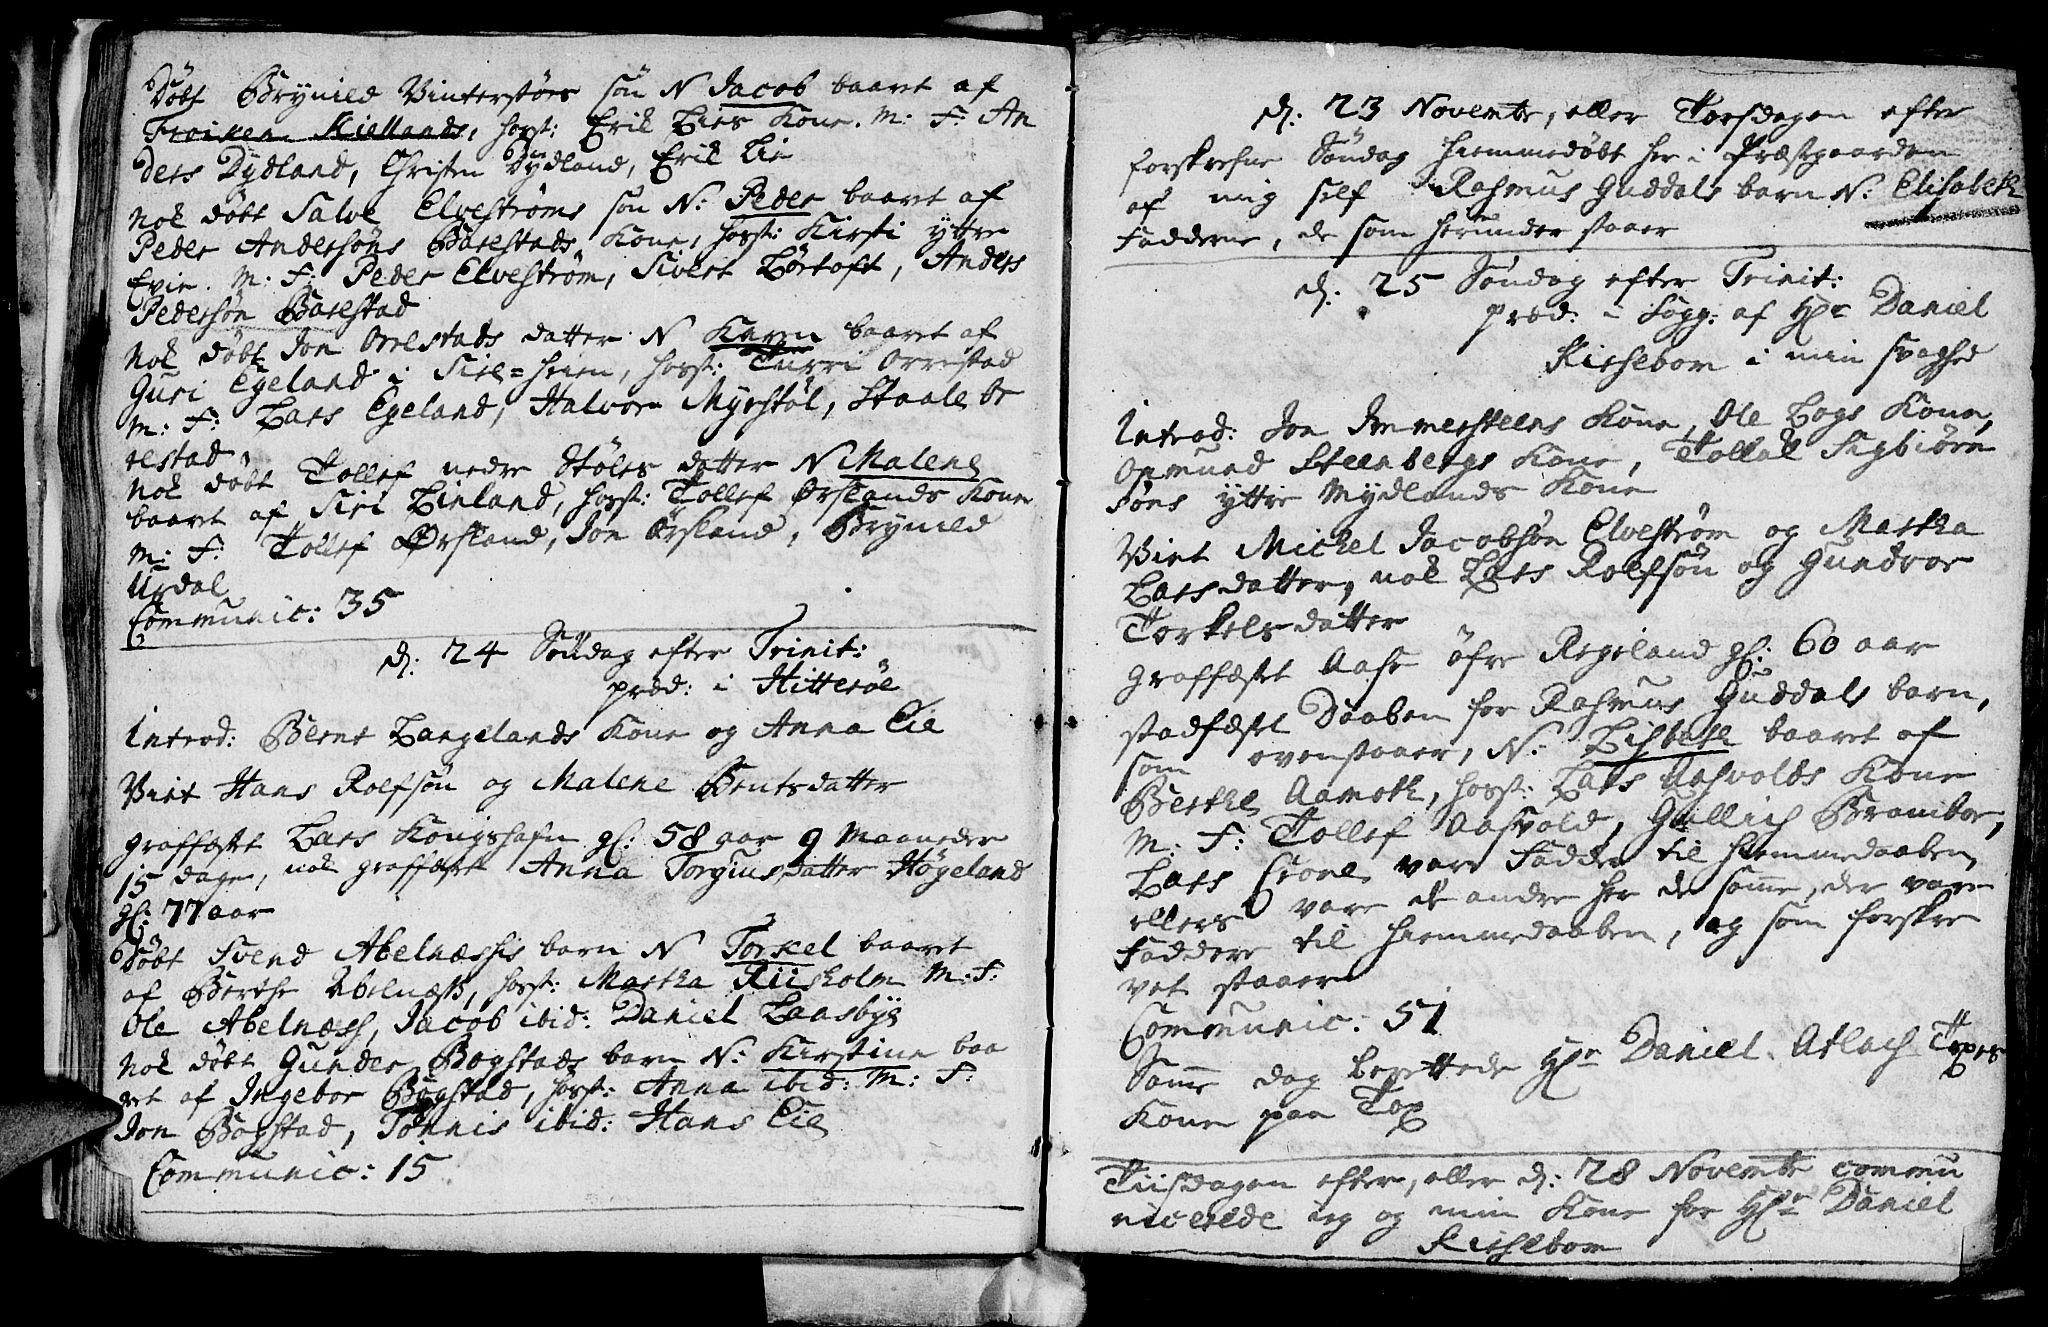 Døbt Brynild Vinterstøes søn N Jacob baaret af
Froiken Kiellands, host: Erik Lies Kone. M: F: An
ders Dydland, Christen Dydland, Erik Lie
Nok døbt Salve Elvestrøms søn N: Peder baaret af
Peder Andersøns Barstads Kone, host: Kirsti yttre
Evie. M: F: Peder Elvestrøm, Sivert Lørtoft, Anders
Pedersøn Barstad
Nok døbt Jon Orrestads datter N Karen baaret af
Guri Egeland i Sire=heien, host: Turri Orrestad
M: F: Lars Egeland, Halvor Myrstøl, Staale Or
restad,
Nok døbt Tollef nedre Støles datter N Malene
baaret af Siri Linland, host: Tollef Ørslands Kone
M: F: Tollef Ørsland, Jon Ørsland, Brynild
Urdal
Communic: 35
d: 24 Søndag efter Trinit:
præd: i Hitterøe
Introd: Bernt Langelands Kone og Anna Eie
Viet Hans Rolfsøn og Malene Bentsdatter
graffæstet Lars Kongshafn gl: 58 aar 9 Maaneder
15 dage, nok graffæstet Anna Torgiusdatter Høgeland
gl: 77 aar
Døbt Svend Abelnæssis barn N Torkel baaret
af Berthe Abelnæss, host: Martha Riisholm M: F:
Ole Abelnæss, Jacob ibid: Daniel Laasbye
Nok døbt Gunder Bogstads barn N: Kirstine baa
ret af Ingebor Bogstad, host: Anna ibid: M: F:
Jon Bogstad, Tønnis ibid: Hans Eie
Communic: 15
d: 23 Novembr, eller Torsdagen efter
forskrefne Søndag hiemmedøbt her i Præstgaarden
af mig self Rasmus Guddals barn N: Elisabeth
Fadderne, de som herunder staaer
d: 25 Søndag efter Trinit:
præd: i Sogg: af Hr Daniel
Kirsebom i min svaghed
Introd: Jon Immersteens Kone, Ole Logs Kone,
Omund Steenbergs Kone, Tollak Sigbiørn
søns yttre Mydlands Kone
Viet Michel Jacobsøn Elvestrøm og Martha
Larsdatter, nok Lars Rolfsøn og Gundvor
Torkelsdatter
graffæstet Aase øfre Regeland gl: 60 aar
stadfæstet Daaben for Rasmus Guddals barn,
som ovenstaaer, N: Lisbeth baaret af
Berthe Aamoth, host: Lars Aasvolds Kone
M: F: Tollef Aasvold, Gullich Brambor,
Lars Erone var Fadder til hiemmedaaben,
ellers vare de andre her de samme, der vare
Faddere til hiemmedaaben, og som forskre
vet staaer
Communic: 51
Samme dag berettede Hr Daniel. Atlach Tøxes
Kone paa Tox
Tiisdagen efter, eller d: 28 Novembr commu
nicerede ieg og min Kone for Hr Daniel
Kirsebom